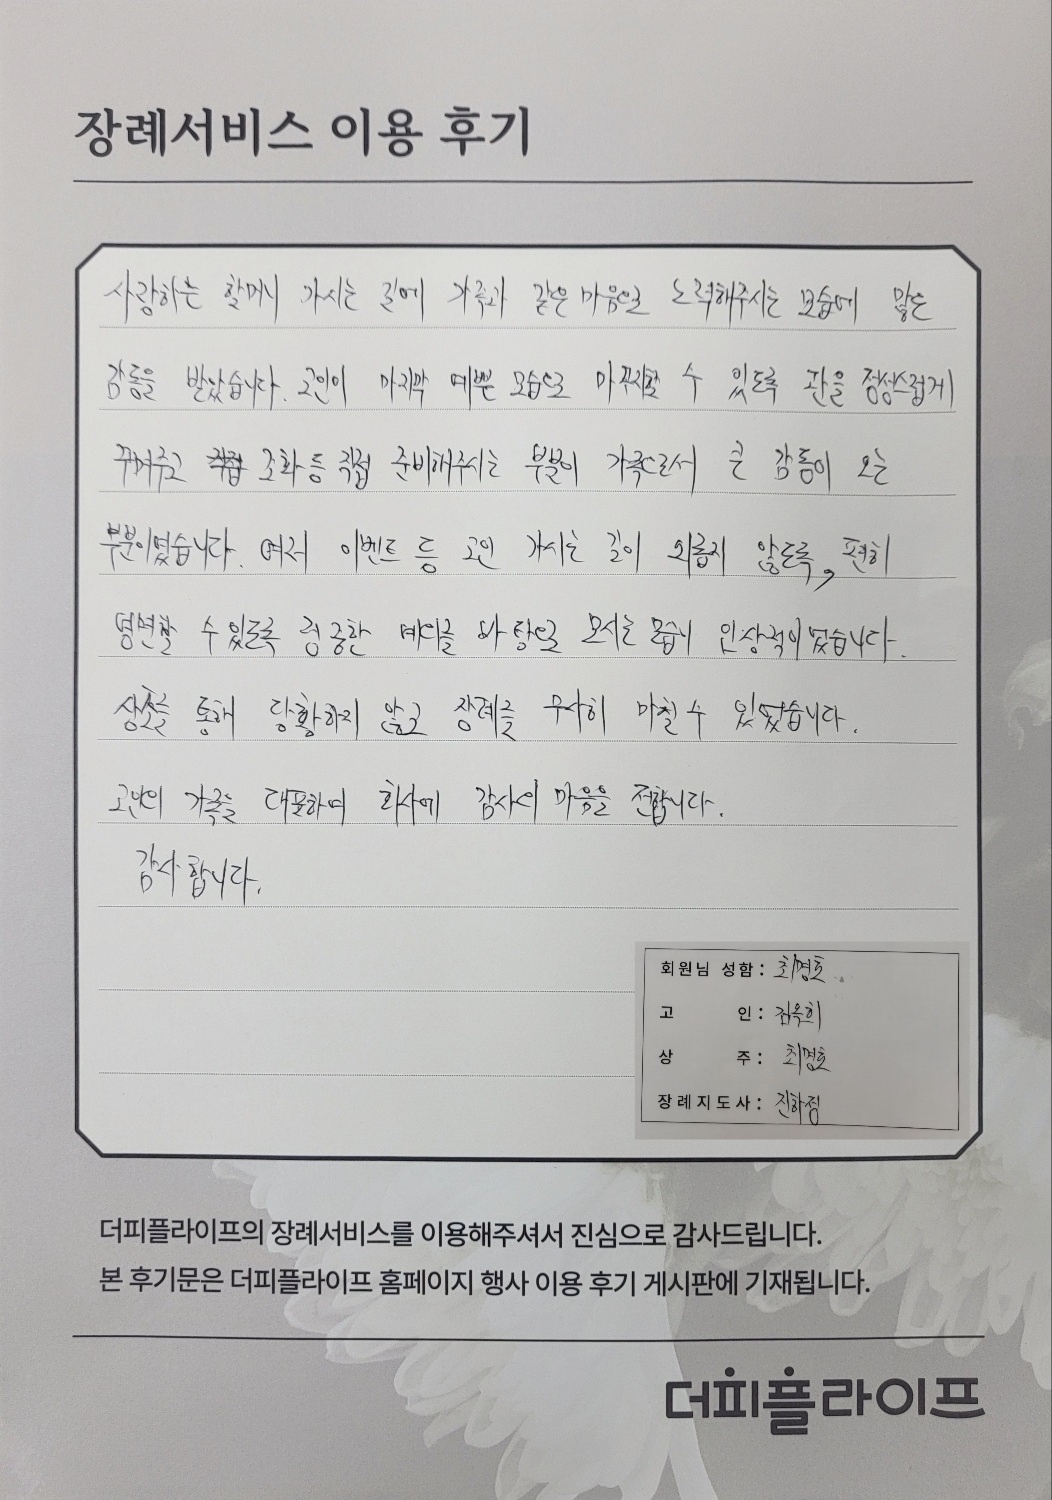 장례서비스 이용 후기
사랑하는 할머니 가시는 길에 가족과 같은 마음으로 노력해주시는 모습에 많은
감동을 받았습니다. 고인이 마지막 예쁜 모습으로 마무리할 수 있도록 관을 정성스럽게
꾸며주고 조화 등 직접 준비해주시는 부분이 가족으로서 큰 감동이 오는
부분이였습니다. 여러 이벤트 등 고인 가시는 길이 외롭지 않도록, 편히
영면할 수 있도록 정중한 예의를 바탕으로 모시는 모습이 인상적이었습니다.
상조를 통해 당황하지 않고 장례를 무사히 마칠 수 있었습니다.
고인의 가족을 대표하여 회사에 감사의 마음을 전합니다.
감사합니다.
회원님 성함 : 최명호
고 인 : 김옥희
상 주 : 최명호
장례지도사 : 진하정
더피플라이프의 장례서비스를 이용해주셔서 진심으로 감사드립니다.
본 후기문은 더피플라이프 홈페이지 행사 이용 후기 게시판에 기재됩니다.
더피플라이프